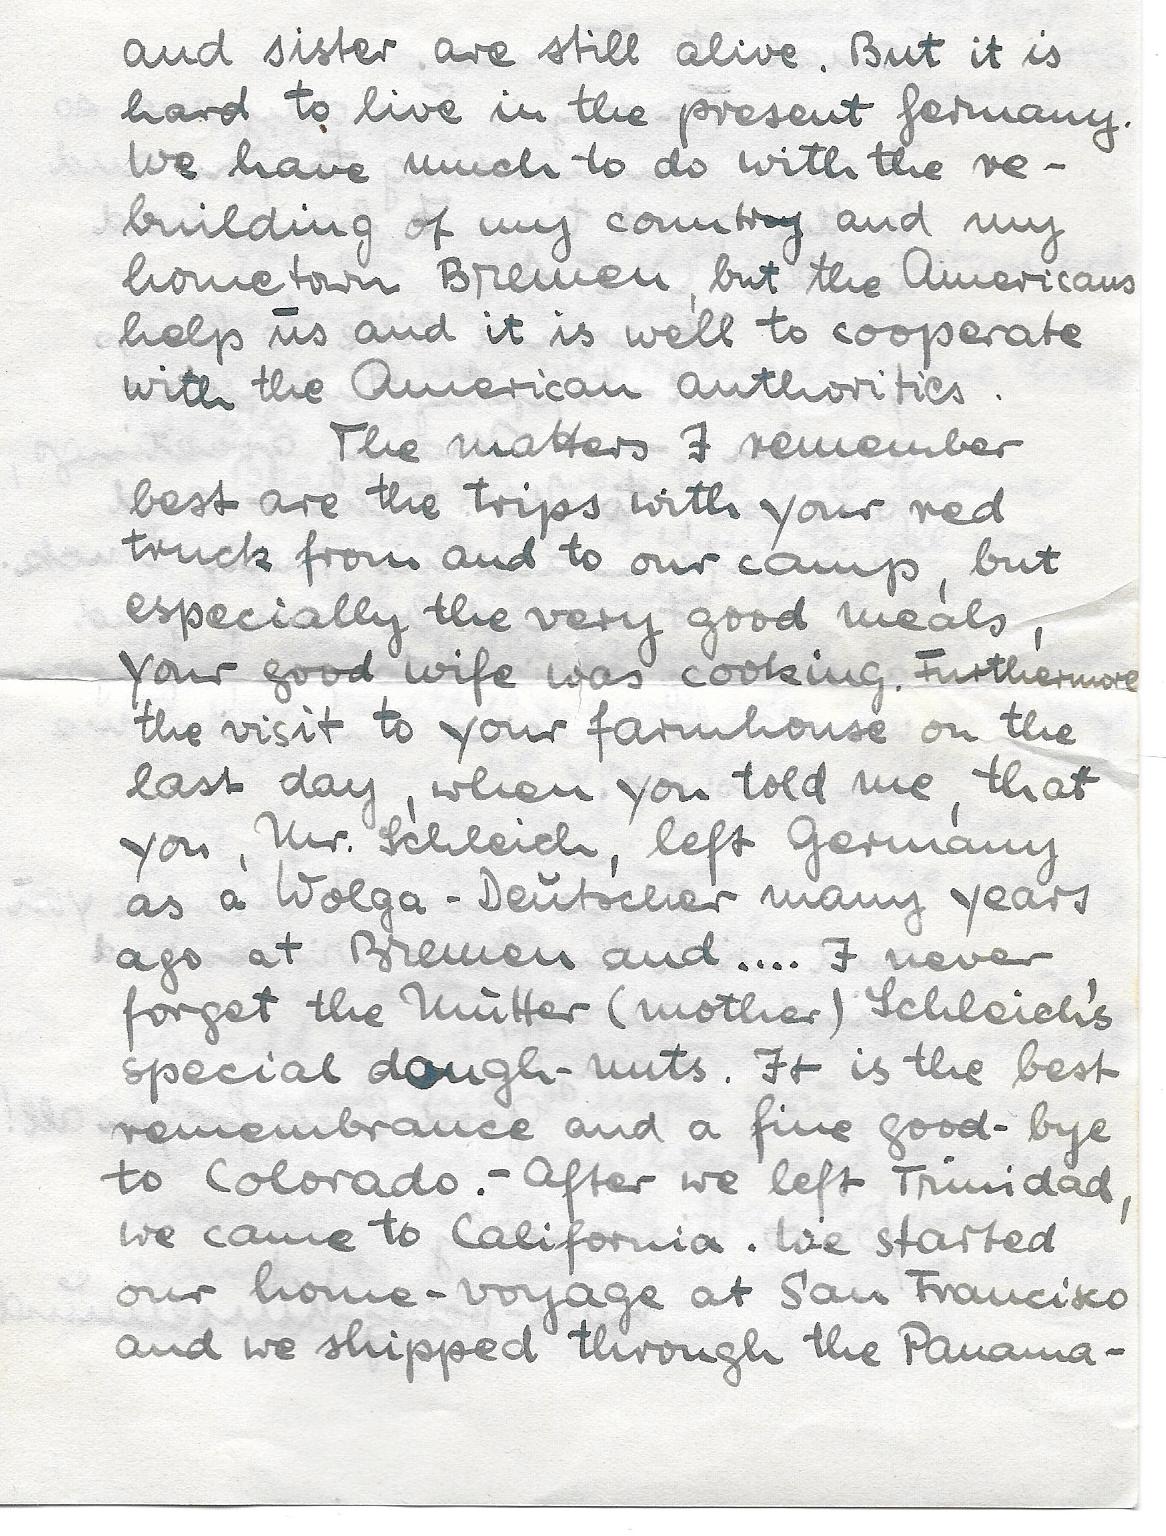 and sister are still alive. But it is
hard to live in the present Germany.
We have much to do with the re-
building of my country and my
hometown Bremen, but the Americans
help us and it is well to cooperate
with the American authorities.
The matters I remember
best are the trips with your red
truck from and to our camp, but
especially the very good meals,
your good wife was cooking. Furthermore
the visit to your farmhouse on the
last day, when you told me, that
you, Mr. Schleich, left Germany
as a Wolga-Deutscher many years
ago at Bremen and.... I never
forget the Mutter (mother) Schleich's
special dough-nuts. It is the best
remembrance and a fine good-bye
to Colorado.- After we left Trinidad,
we came to California. We started
our home-voyage at San Francisko
and we shipped through the Panama-